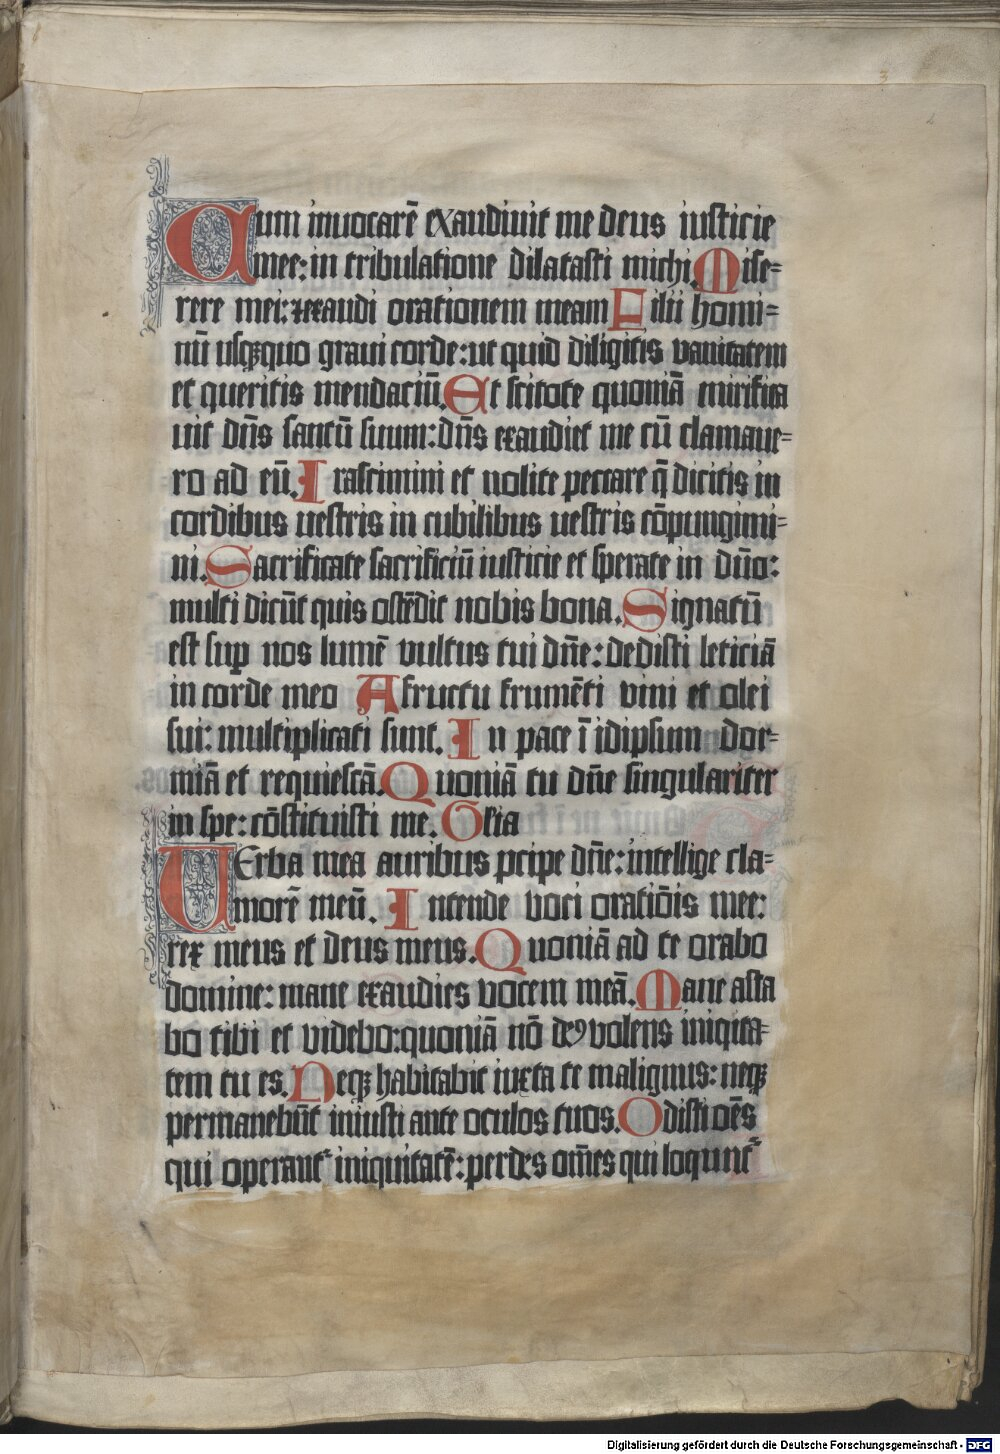 3
Cum inuocarē exaudiuit me deus iusticie
mee: in tribulatione dilatasti michi. Mise-
rere mei: ⁊ exaudi orationem meam Filii homi-
nū usqꝫquo graui corde: ut quid diligitis vanitatem
et queritis mendaciū. Et scitote quoniā mirifica
uit dn̄s sanctū suum: dn̄s exaudiet me cū clamaue-
ro ad eū. Irascimini et nolite peccare q̄ dicitis in
cordibus uestris in cubilibus uestris cōpungimi-
ni. Sacrificate sacrificiū iusticie et sperate in dn̄o:
multi dicūt quis ostēdit nobis bona. Signatū
est suꝑ nos lumē vultus tui dn̄e: dedisti leticiā
in corde meo A fructu frumēti vini et olei
sui: multiplicati sunt. In pace ī idipsum dor-
miā et requiescā. Quoniā tu dn̄e singulariter
in spe: cōstituisti me. Glia
UErba mea auribus ꝑcipe dn̄e: intellige cla-
morē meū. Intende voci oratiōis mee:
rex meus et deus meus. Quoniā ad te orabo
domine: mane exaudies vocem meā. Mane asta
bo tibi et videbo: quoniā nō deꝰ volens iniqita-
tem tu es. Neqꝫ habitabit iuxta te malignus: neqꝫ
permanebūt iniusti ante oculos tuos. Odisti oēs
qui operant᷑ iniquitatē: perdes om̄es qui loqunt᷑
Digitalisierung gefördert durch die Deutsche Forschungsgemeinschaft - DFG